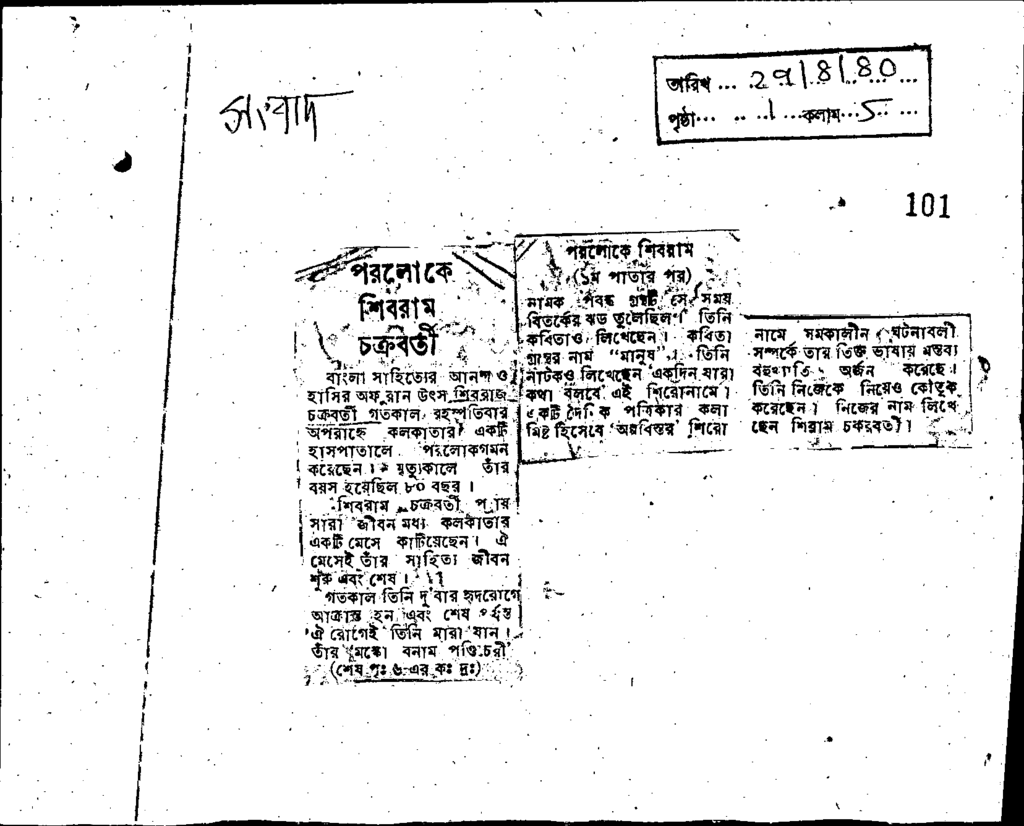 সংবাদ
তারিখ ... 29/8/80 ...
পৃষ্ঠা... .. ..1 ...কলাম...5.. ...
101
পরলোকে
শিবরাম
চক্রবর্তী
বাংলা সাহিত্যের আনন্দ ও
হাসির অফুরান উৎস শিবরাজ
চক্রবর্তী গতকাল বৃহস্পতিবার
অপরাহ্নে কলকাতার একটি
হাসপাতালে পরলোকগমন
করেছেন। মৃত্যুকালে তাঁর
বয়স হয়েছিল ৮০ বছর।
শিবরাম চক্রবর্তী প্রায়
সারা জীবন মধ্য কলকাতার
একটি মেসে কাটিয়েছেন। ঐ
মেসেই তাঁর সাহিত্য জীবন
শুরু এবং শেষ।
গতকাল তিনি দু'বার হৃদরোগে
আক্রান্ত হন এবং শেষ পর্যন্ত
ঐ রোগেই তিনি মারা যান।
তাঁর 'মস্কো বনাম পণ্ডিচেরী'
(শেষ পৃঃ ৬-এর কঃ দ্রঃ)
পরলোকে শিবরাম
(১ম পাতার পর)
নামক প্রবন্ধ গ্রন্থটি সে সময়
বিতর্কের ঝড় তুলেছিল। তিনি
কবিতাও লিখেছেন। কবিতা
গ্রন্থের নাম "মানুষ"। তিনি
নাটকও লিখেছেন 'একদিন যারা
কথা বলবে' এই শিরোনামে।
একটি দৈনিক পত্রিকার কলা
মিষ্ট হিসেবে 'অল্পবিস্তর' শিরো
নামে সমকালীন ঘটনাবলী
সম্পর্কে তার তিক্ত ভাষায় মন্তব্য
অর্জন করেছে।
তিনি নিজেকে নিয়েও কৌতুক
করেছেন। নিজের নাম লিখে
ছেন শিব্রাম চকরবর্তী।